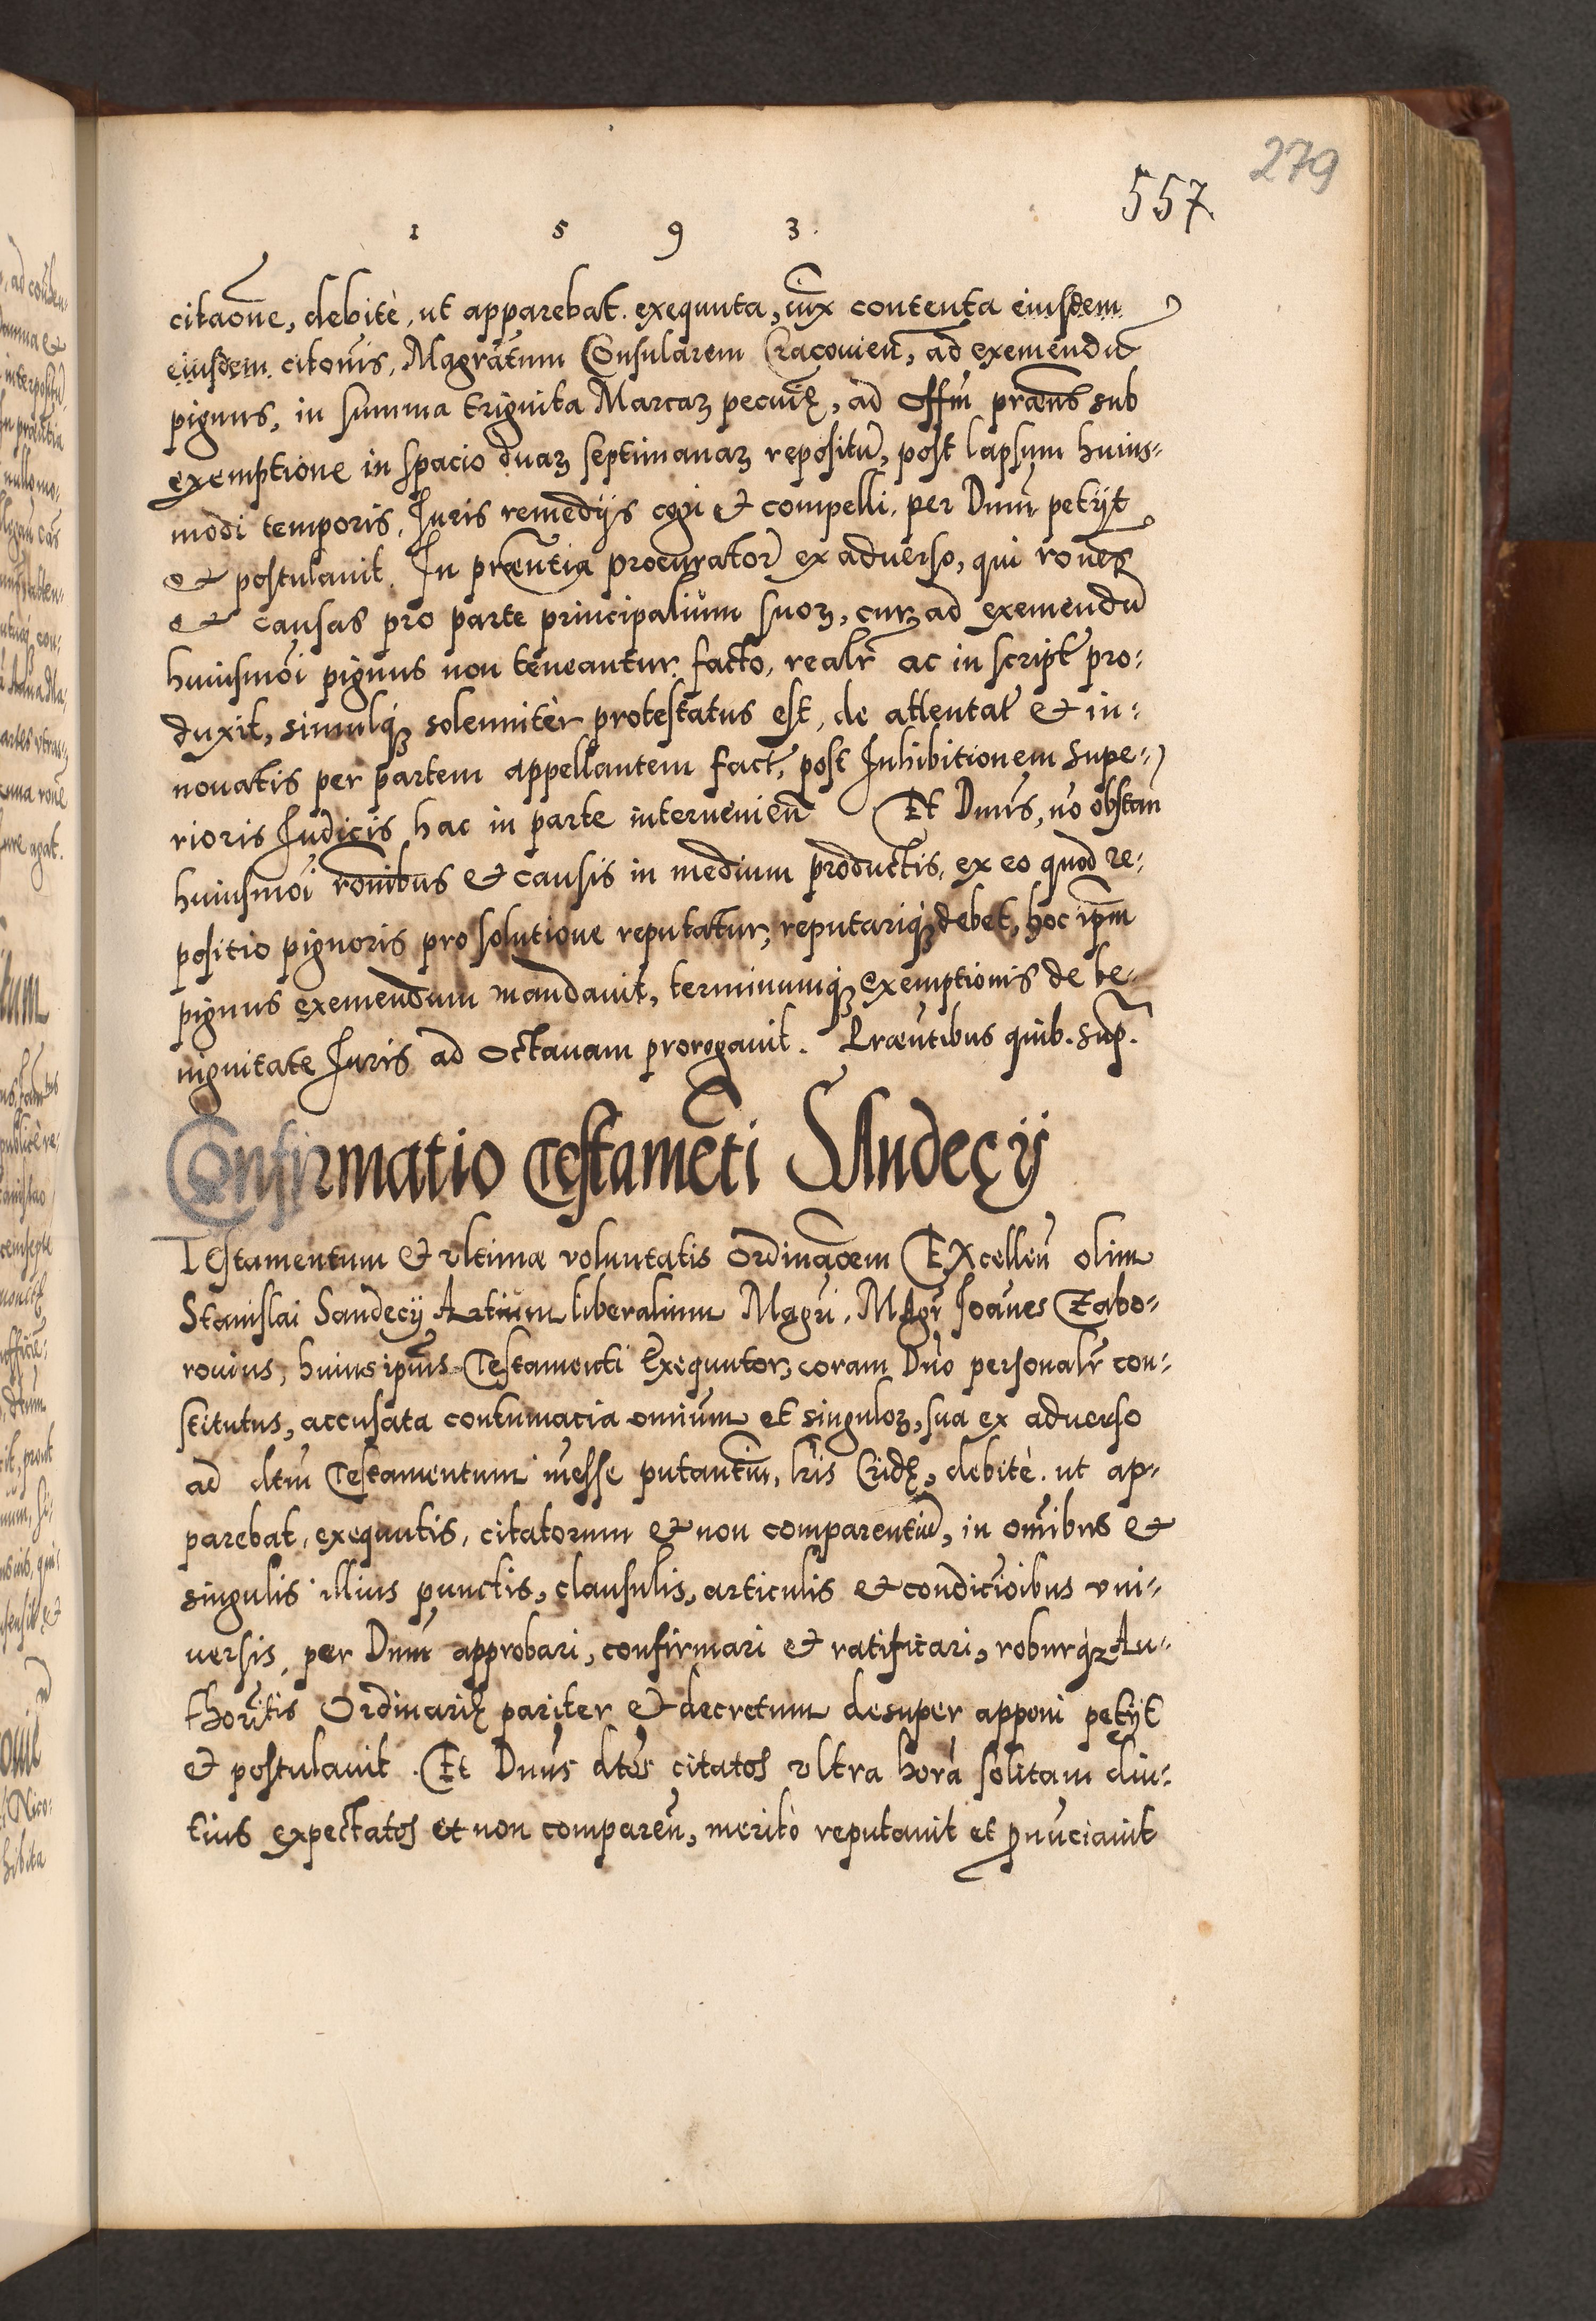 279
557
1 5 9 3.
citaōne, debitè, ut apparebat. exequuta, iux̄ contenta eiusdem
eiusdem citōnis, Magrātum Consularem Cracouien̄, ad exemendū
pignus, in summa triginta Marcaꝝ pecuniæ, ad Offm̄ præns̄ sub
exemptione in spacio duaꝝ septimanaꝝ repositū, post lapsum huius-
modi temporis, Iuris remedijs cogi & compelli, per Dnm̄ petijt
& postulauit. In præntia procurator̄ ex aduerso, qui rōnes
& causas pro parte principalium suoꝝ, cur ad exemendū
huiusmōi pignus non teneantur facto, realr̄ ac in script̄ pro-
duxit, simulq̃ꝫ solennitèr protestatus est, de attentat̄ & in-
nouatis per partem appellantem fact̄, post Inhibitionem Supe-
rioris Iudicis hac in parte interuenien̄ Et Dnūs, nō obstan̄
huiusmōi rōnibus & causis in medium productis, ex eo quod re-
positio pignoris pro solutione reputatur, reputariq̃ꝫ debet, hoc ipm̄
pignus exemendum mandauit, terminumq̃ꝫ exemptionis de be-
nignitate Iuris ad Octauam prorogauit. Præntibus quib. sup̄.
Confirmatio Testamēti SAndecÿ
TEstamentum & vltimæ voluntatis ordinaōem EXcellen̄ olim
Stanislai Sandecÿ Artium liberalium Magri, MAgr̄ Ioānes Zabo-
rouius, huius ipīus Testamenti Exequutor, coram Dnō personalr̄ con-
stitutus, accusata contumacia omnium et singuloꝝ, sua ex aduerso
ad dtm̄ Testamentum inēsse putantiū, lr̄is Cridæ, debitè, ut ap-
parebat, exequutis, citatorum & non comparentiū, in omībus &
singulis illius punctis, clausulis, articulis & condicioībus vni-
uersis, per Dnm̄ approbari, confirmari & ratificari, roburq̃ꝫ Au-
thoritīs Ordinariæ pariter & decretum desuper apponi petijt
& postulauit. Et Dnūs dtōs citatos vltra horā solitam diu-
tius expectatos et non comparen̄, meritò reputauit et ꝓnūciauit